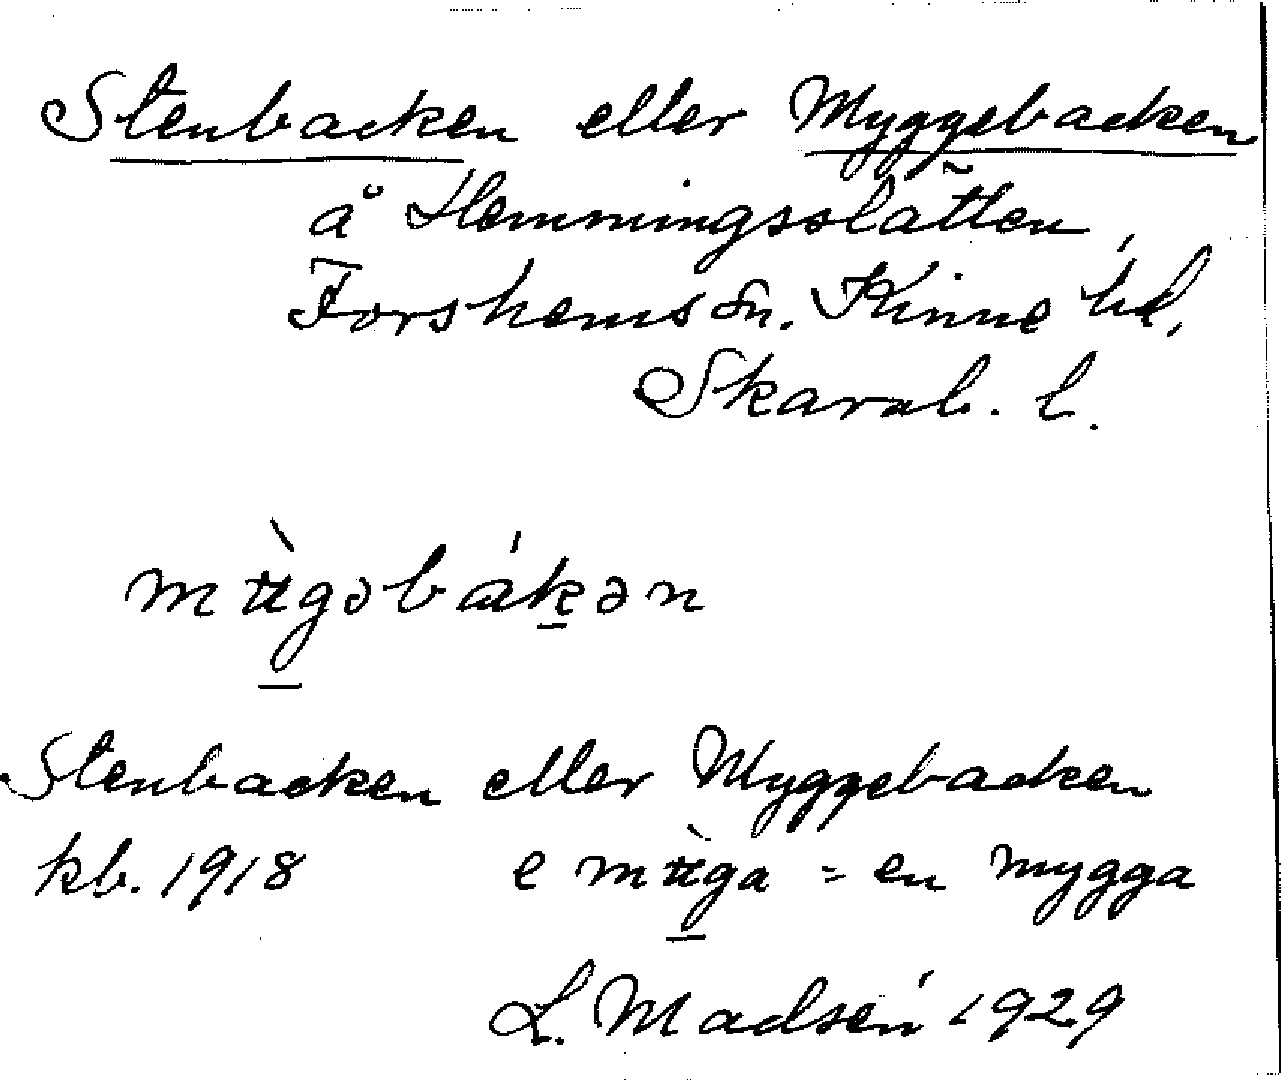 Stenbacken eller Myggebacken
å Hemmingsslätten,
Forshems sn. Kinne hd,
Skarab. l.
mʉ̀gəbákən
Stenbacken eller Myggebacken
kb. 1918 e mʉ̀ga = en mygga
L. Madsén 1929